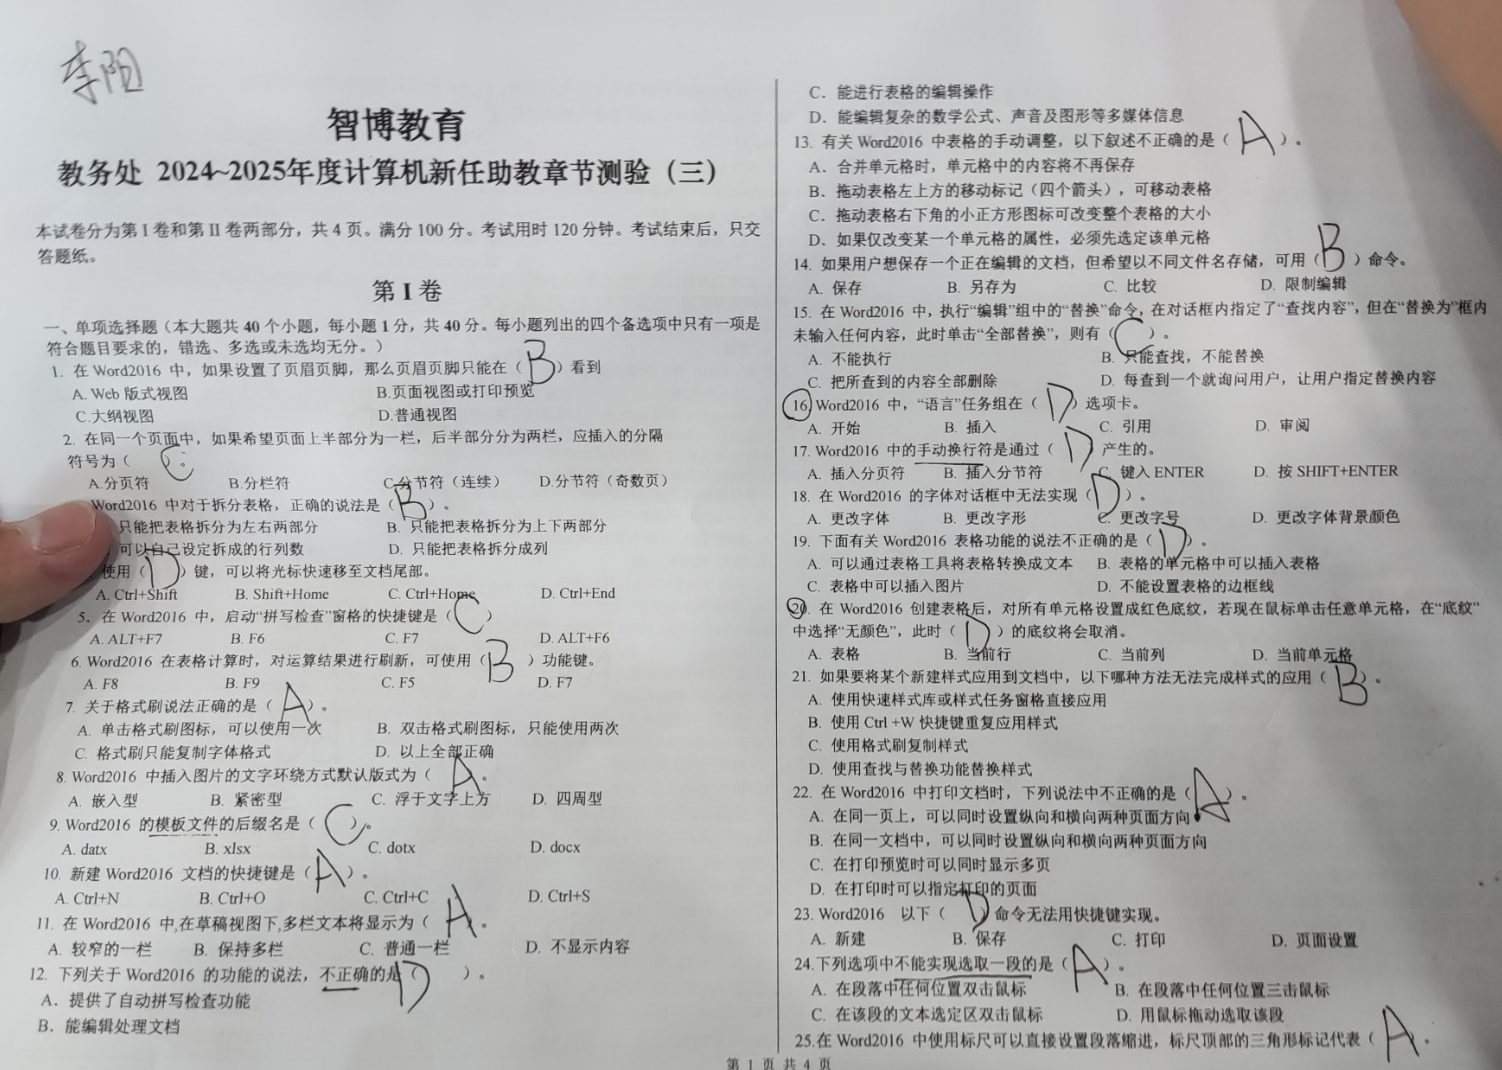 李阳
智博教育
教务处 2024~2025年度计算机新任助教章节测验（三）
本试卷分为第 I 卷和第 II 卷两部分，共 4 页。满分 100 分。考试用时 120 分钟。考试结束后，只交
答题纸。
第 I 卷
一、单项选择题（本大题共 40 个小题，每小题 1 分，共 40 分。每小题列出的四个备选项中只有一项是
符合题目要求的，错选、多选或未选均无分。）
1. 在 Word2016 中，如果设置了页眉页脚，那么页眉页脚只能在（ B ）看到
A. Web 版式视图 B.页面视图或打印预览
C.大纲视图 D.普通视图
2. 在同一个页面中，如果希望页面上半部分为一栏，后半部分分为两栏，应插入的分隔
符号为（ C ）。
A.分页符 B.分栏符 C.分节符（连续） D.分节符（奇数页）
Word2016 中对于拆分表格，正确的说法是（ B ）。
只能把表格拆分为左右两部分 B. 只能把表格拆分为上下两部分
可以自己设定拆成的行列数 D. 只能把表格拆分成列
使用（ D ）键，可以将光标快速移至文档尾部。
A. Ctrl+Shift B. Shift+Home C. Ctrl+Home D. Ctrl+End
5. 在 Word2016 中，启动“拼写检查”窗格的快捷键是（ C ）
A. ALT+F7 B. F6 C. F7 D. ALT+F6
6. Word2016 在表格计算时，对运算结果进行刷新，可使用（ B ）功能键。
A. F8 B. F9 C. F5 D. F7
7. 关于格式刷说法正确的是（ A ）。
A. 单击格式刷图标，可以使用一次 B. 双击格式刷图标，只能使用两次
C. 格式刷只能复制字体格式 D. 以上全部正确
8. Word2016 中插入图片的文字环绕方式默认版式为（ A ）。
A. 嵌入型 B. 紧密型 C. 浮于文字上方 D. 四周型
9. Word2016 的模板文件的后缀名是（ C ）。
A. datx B. xlsx C. dotx D. docx
10. 新建 Word2016 文档的快捷键是（ A ）。
A. Ctrl+N B. Ctrl+O C. Ctrl+C D. Ctrl+S
11. 在 Word2016 中,在草稿视图下,多栏文本将显示为（ A ）。
A. 较窄的一栏 B. 保持多栏 C. 普通一栏 D. 不显示内容
12. 下列关于 Word2016 的功能的说法，不正确的是（ D ）。
A．提供了自动拼写检查功能
B．能编辑处理文档
C．能进行表格的编辑操作
D．能编辑复杂的数学公式、声音及图形等多媒体信息
13. 有关 Word2016 中表格的手动调整，以下叙述不正确的是（ A ）。
A．合并单元格时，单元格中的内容将不再保存
B．拖动表格左上方的移动标记（四个箭头），可移动表格
C．拖动表格右下角的小正方形图标可改变整个表格的大小
D．如果仅改变某一个单元格的属性，必须先选定该单元格
14. 如果用户想保存一个正在编辑的文档，但希望以不同文件名存储，可用（ B ）命令。
A. 保存 B. 另存为 C. 比较 D. 限制编辑
15. 在 Word2016 中，执行“编辑”组中的“替换”命令，在对话框内指定了“查找内容”，但在“替换为”框内
未输入任何内容，此时单击“全部替换”，则有（ C ）。
A. 不能执行 B. 只能查找，不能替换
C. 把所查到的内容全部删除 D. 每查到一个就询问用户，让用户指定替换内容
16. Word2016 中，“语言”任务组在（ D ）选项卡。
A. 开始 B. 插入 C. 引用 D. 审阅
17. Word2016 中的手动换行符是通过（ D ）产生的。
A. 插入分页符 B. 插入分节符 C. 键入 ENTER D. 按 SHIFT+ENTER
18. 在 Word2016 的字体对话框中无法实现（ D ）。
A. 更改字体 B. 更改字形 C. 更改字号 D. 更改字体背景颜色
19. 下面有关 Word2016 表格功能的说法不正确的是（ D ）。
A. 可以通过表格工具将表格转换成文本 B. 表格的单元格中可以插入表格
C. 表格中可以插入图片 D. 不能设置表格的边框线
20. 在 Word2016 创建表格后，对所有单元格设置成红色底纹，若现在鼠标单击任意单元格，在“底纹”
中选择“无颜色”，此时（ D ）的底纹将会取消。
A. 表格 B. 当前行 C. 当前列 D. 当前单元格
21. 如果要将某个新建样式应用到文档中，以下哪种方法无法完成样式的应用（ B ）。
A. 使用快速样式库或样式任务窗格直接应用
B. 使用 Ctrl +W 快捷键重复应用样式
C. 使用格式刷复制样式
D. 使用查找与替换功能替换样式
22. 在 Word2016 中打印文档时，下列说法中不正确的是（ A ）。
A. 在同一页上，可以同时设置纵向和横向两种页面方向
B. 在同一文档中，可以同时设置纵向和横向两种页面方向
C. 在打印预览时可以同时显示多页
D. 在打印时可以指定打印的页面
23. Word2016 以下（ D ）命令无法用快捷键实现。
A. 新建 B. 保存 C. 打印 D. 页面设置
24.下列选项中不能实现选取一段的是（ A ）。
A. 在段落中任何位置双击鼠标 B. 在段落中任何位置三击鼠标
C. 在该段的文本选定区双击鼠标 D. 用鼠标拖动选取该段
25.在 Word2016 中使用标尺可以直接设置段落缩进，标尺顶部的三角形标记代表（ A ）。
第 1 页 共 4 页